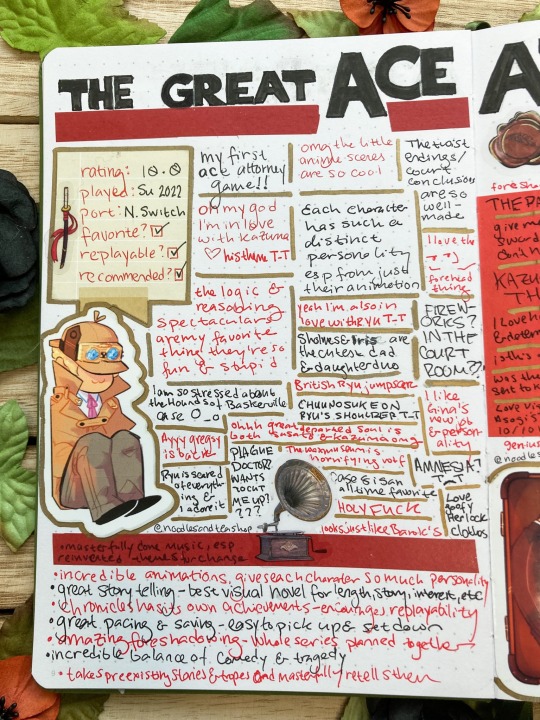 THE GREAT ACE A
rating: 10.0
played: Su 2022
port: N. Switch
favorite?
replayable?
recommended?
my first
ace attorney
game!!
omg the little
anime scenes
are so cool
The twist
endings/
court
conclusions
are so
well-
made
oh my god
I'm in love
with Kazuma
♡ his theme T-T
Each character
has such a
distinct
personality
esp from just
their animation
I love the
forehead
thing
the logic &
reasoning
spectaculars
are my favorite
thing they're so
fun & stupid
yeah I'm also in
love with RYU T-T
Sholmes & Iris are
the cutest dad
& daughter duo
FIREW-
ORKS?
IN THE
COURT
ROOM??
I am so stressed about
the Hounds of Baskerville
case O_O
British Ryu jumpscare
CHUUNOSUKE ON
RYU'S SHOULDER T-T
I like
Gina's
new job
& person-
ality
Ayyy gregsy
is back
ohhh great departed soul is
both Susato & Kazuma omg
PLAGUE
DOCTOR
WANTS
ME UP?!
???
The waxmuseum is
horrifying wtf
Case 5 is an
all time favorite
AMNESIA?
T-T
Ryu is scared
of everyth-
ing &
i adore it
HOLY FUCK
looks just like Barok's
Love
goofy
Herlock
clothes
@noodlesandteashop
•masterfully done music, esp
reinvented themes for change
•incredible animations, gives each charater so much personality
•great story telling - best visual novel for length, story, interest, etc
•Chronicles has its own achievements - encourages replayability
•great pacing & saving - easy to pick up & set down
•amazing foreshadowing - whole series planned together
•incredible balance of comedy & tragedy
•takes preexisting stories & tropes and masterfully retells them
foresha
THE PA
give me
sward
don't h
KAZU
TH
I Love h
is th
was th
sent to K
Love
Asogi's
10/10
genius
@noodle